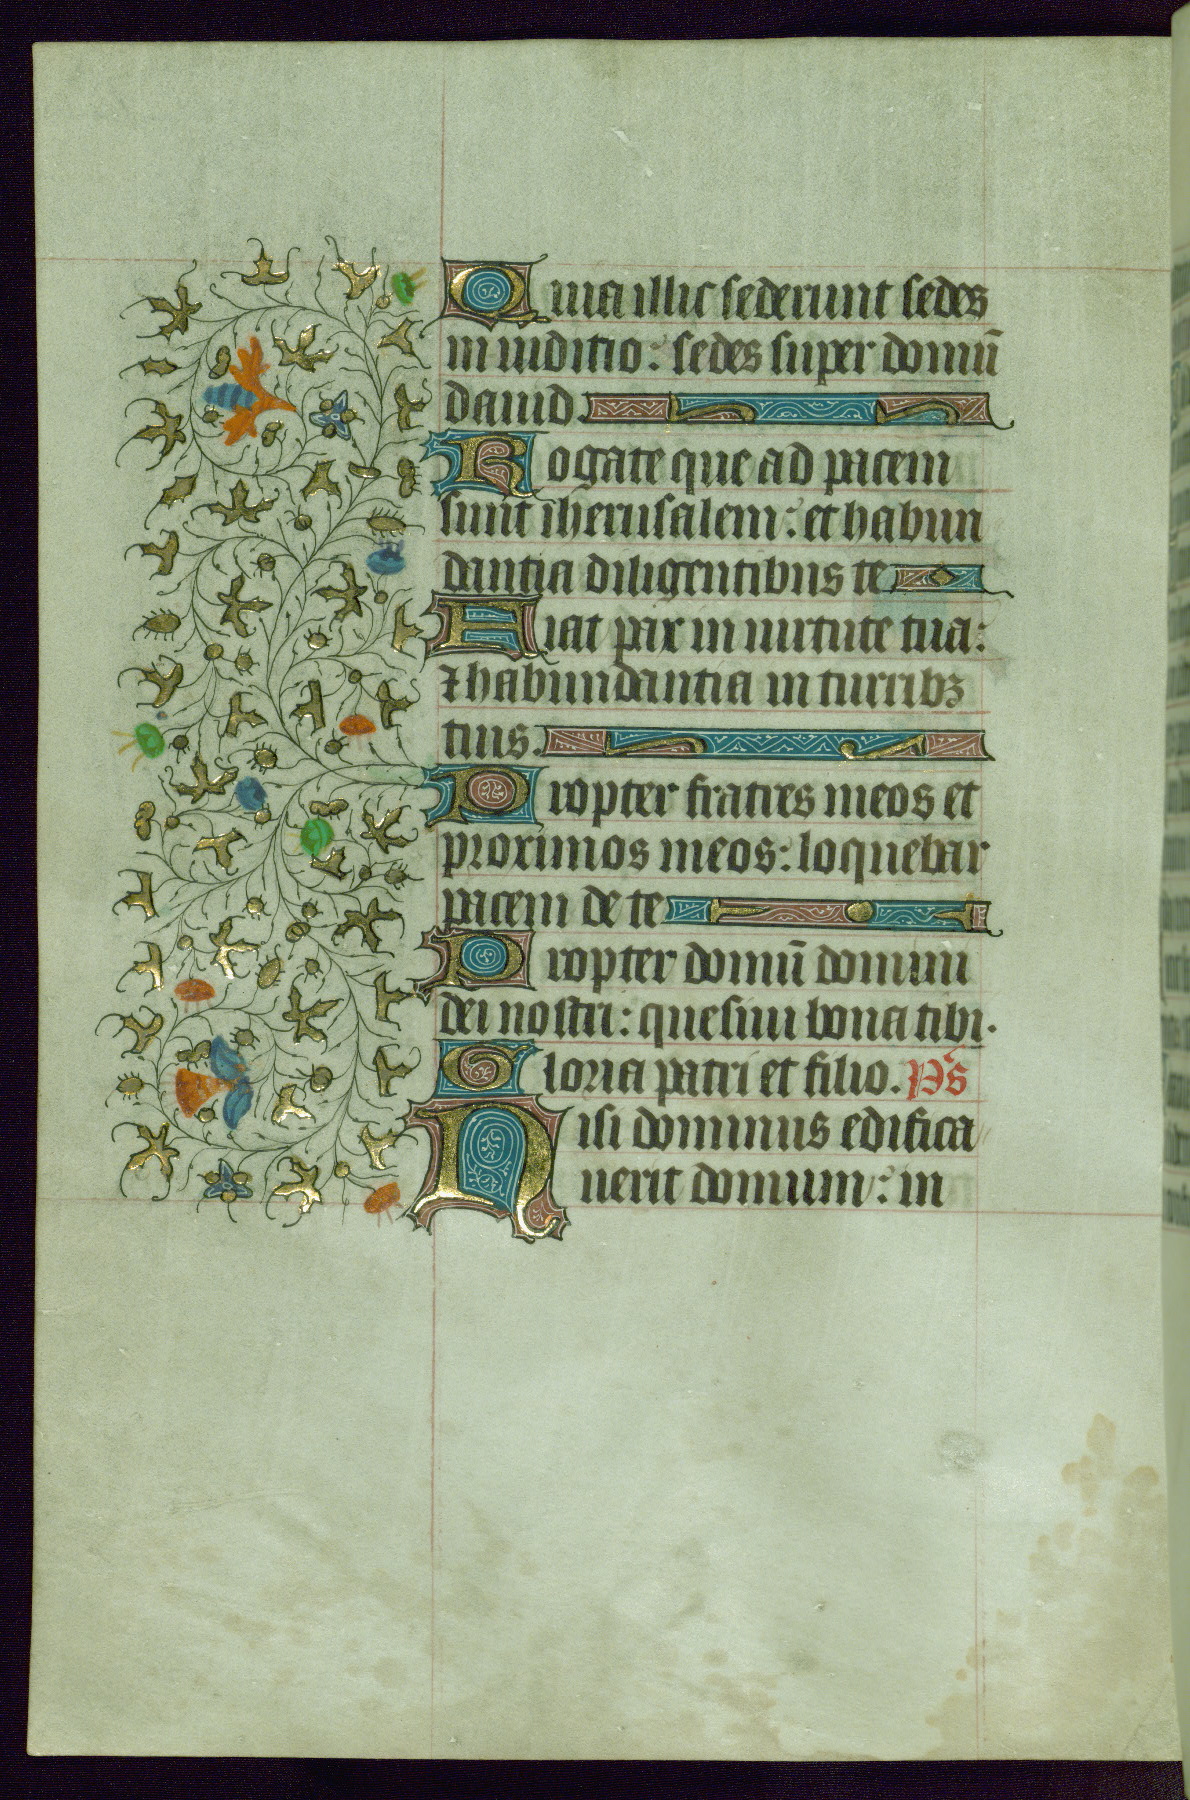 Quia illic sederunt sedes
in iuditio: sedes super domū
dauid.
Rogate que ad pacem
sunt iherusalem: et habun
dantia diligentibus te
Fiat pax in uirtute tua:
⁊ habundantia in turribꝫ
tuis.
Propter fratres meos et
proximos meos: loquebar
pacem de te
Propter domū domini
dei nostri: quesiui bona tibi.
Gloria patri et filio. Ps̄
Nisi dominus edifica
uerit domum: in